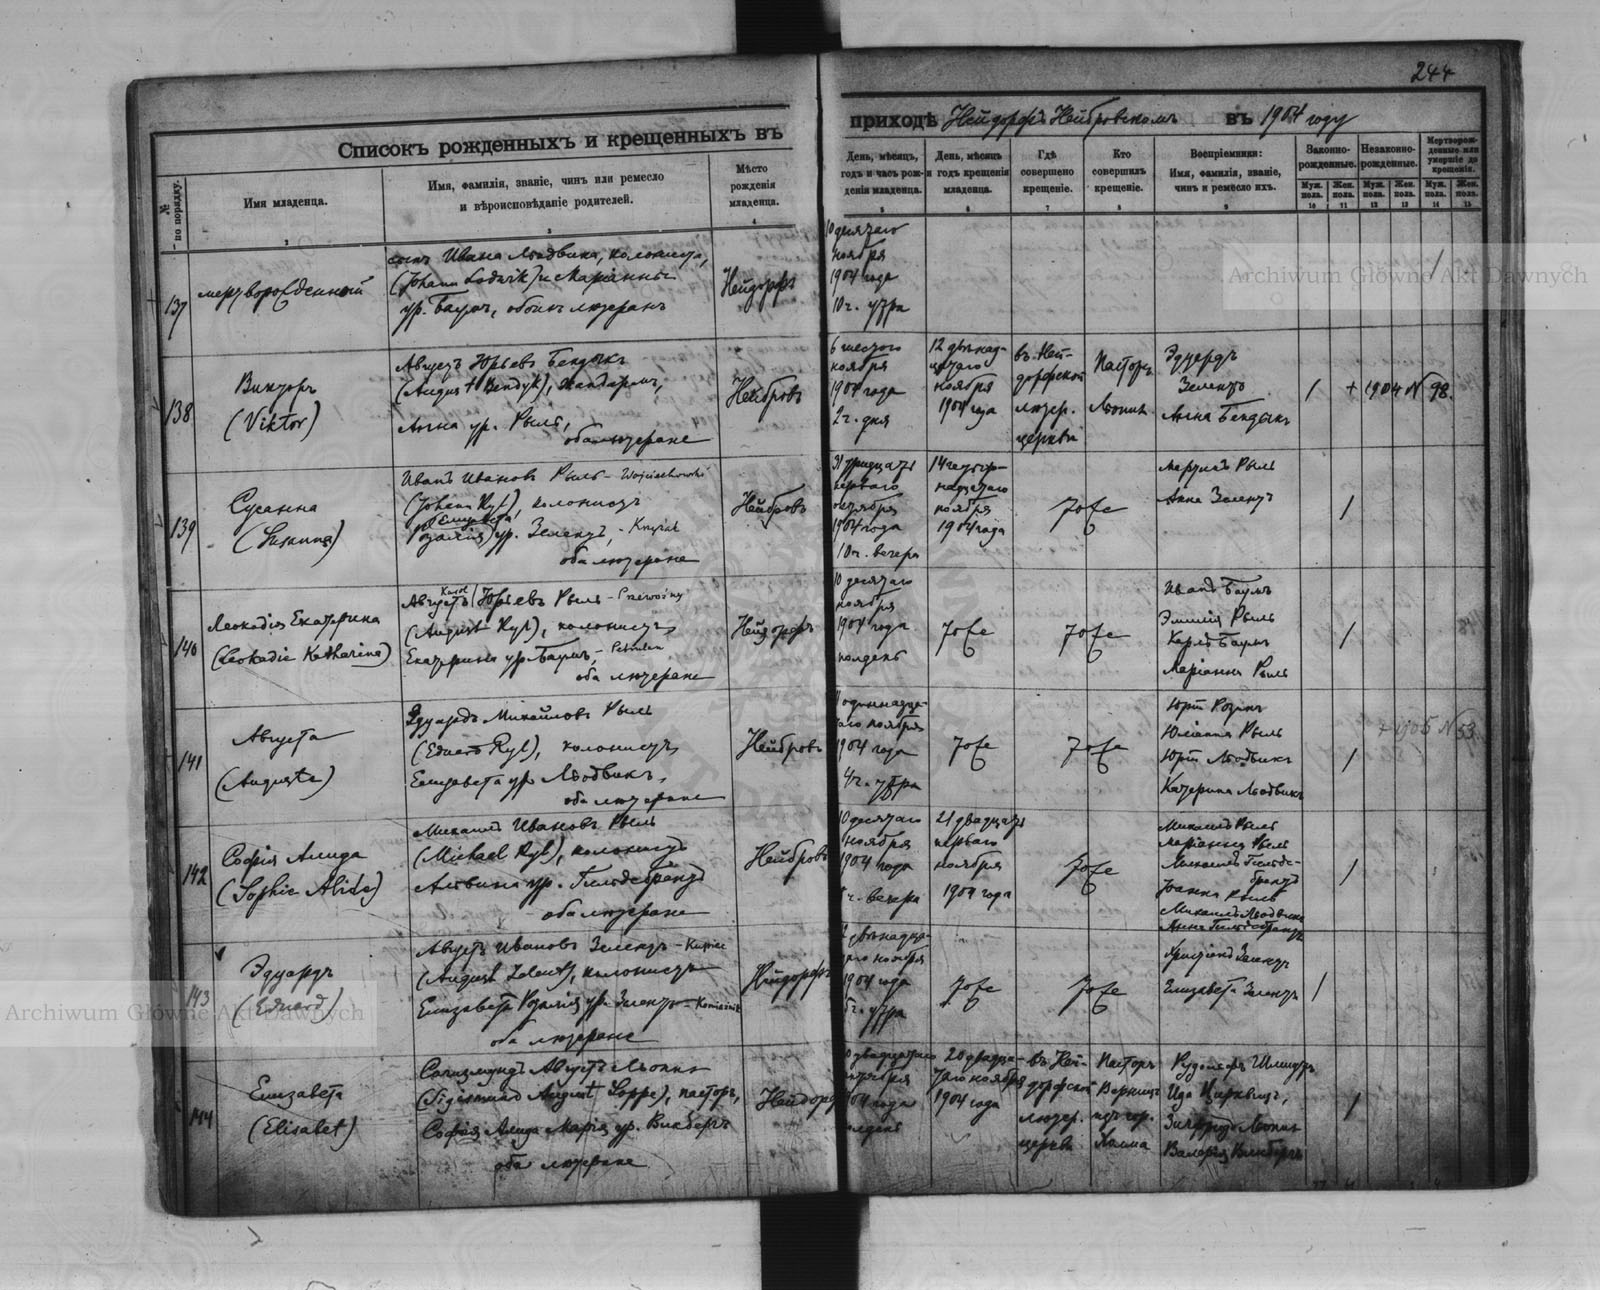 244
Списокъ рожденныхъ и крещенныхъ въ
приходѣ Нейдорфъ Нейбровскомъ въ 1904 году
№ по порядку.
Имя младенца.
Имя, фамилія, званіе, чинъ или ремесло
и вѣроисповѣданіе родителей.
Мѣсто
рожденія
младенца.
День, мѣсяцъ,
годъ и часъ рож-
денія младенца.
День, мѣсяцъ
и годъ крещенія
младенца.
Гдѣ
совершено
крещеніе.
Кто
совершилъ
крещеніе.
Воспріемники:
Имя, фамилія, званіе,
чинъ и ремесло ихъ.
Законно-
рожденные.
Незаконно-
рожденные.
Мертворож-
денные или
умершіе до
крещенія.
Муж. пола.
Жен. пола.
Муж. пола.
Жен. пола.
Муж. пола.
Жен. пола.
2
3
4
5
6
7
8
9
10
11
12
13
14
15
137
мертворожденный
сынъ Ивана Людвика, колониста,
(Johann Ludwik) и Маріанны
ур. Баумъ, обоихъ лютеранъ
Нейдорфъ
10 десятаго
ноября
1904 года
10 ч. утра
/
138
Викторъ
(Viktor)
Августъ Юрьевъ Бендыкъ
(August Bendyk), жандармъ,
Анна ур. Рыль,
оба лютеране
Нейбровъ
6 шестого
ноября
1904 года
2 ч. дня
12 двѣнад-
цатаго
ноября
1904 года
въ Ней-
дорфской
лютер.
церкви
Пасторъ
Лоппе
Эдуардъ
Зеленты
Анна Бендыкъ
/
+ 1904 N 98.
139
Сусанна
(Susanna)
Иванъ Ивановъ Рыль - Wojciechowski
(Johann Ryl), колонистъ
Елисавета
Розалія ур. Зелентъ,
оба лютеране
Нейбровъ
31 тридцать
перваго
октября
1904 года
10 ч. вечера
14 четыр-
надцатаго
ноября
1904 года
тоже
Мартинъ Рыль
Анна Зелентъ
/
140
Леокадія Екатерина
(Leokadie Katharina)
Karol
Августъ Юрьевъ Рыль - Przewoźny
(August Ryl), колонистъ,
Екатерина ур. Баумъ,
оба лютеране
Нейдорфъ
10 десятаго
ноября
1904 года
полдень
тоже
тоже
Иванъ Баумъ
Эмилія Рыль
Карлъ Баумъ
Маріанна Рыль
/
141
Августа
(Auguste)
Эдуардъ Михайловъ Рыль
(Eduard Ryl), колонистъ,
Елизавета ур. Людвикъ,
оба лютеране
Нейбровъ
11 одиннадца-
таго ноября
1904 года
4 ч. утра
тоже
тоже
Юліанна Рыль
Юрій Людвикъ
Катерина Людвикъ
/
+ 1905 N 53
142
Софія Алида
(Sophie Alide)
Михаилъ Ивановъ Рыль
(Michael Ryl), колонистъ
Альвина ур. Гильдебрандъ
оба лютеране
Нейбровъ
10 десятаго
ноября
1904 года
ч. вечера
21 двадцать
перваго
ноября
1904 года
тоже
Михаилъ Рыль
Маріанна Рыль
Михаилъ Гильде-
брандъ
Іоанна Рыль
Михаилъ Людвикъ
Анна Гильдебрандъ
/
143
Эдуардъ
(Eduard)
Августъ Ивановъ Зелентъ
(August Zelent), колонистъ
Елизавета Розалія ур. Зелентъ
оба лютеране
Нейдорфъ
двѣнадца-
таго ноября
1904 года
6 ч. утра
тоже
тоже
Христіанъ Зелентъ
Елизавета Зелентъ
/
144
Елизавета
(Elisabet)
Сигизмундъ Августъ Лоппе
(Sigismund August Loppe), пасторъ,
Софія Алида Марія ур. Винбергъ
оба лютеране
Нейдорф
двадцатаго
октября
1904 года
полдень
20 двадца-
таго ноября
1904 года
въ Ней-
дорфской
лютер.
церкви
Пасторъ
изъ гор.
Холма
Рудольфъ
Ида
Лоппе
Валерія Винбергъ
/
Archiwum Główne Akt Dawnych
Archiwum Główne Akt Dawnych